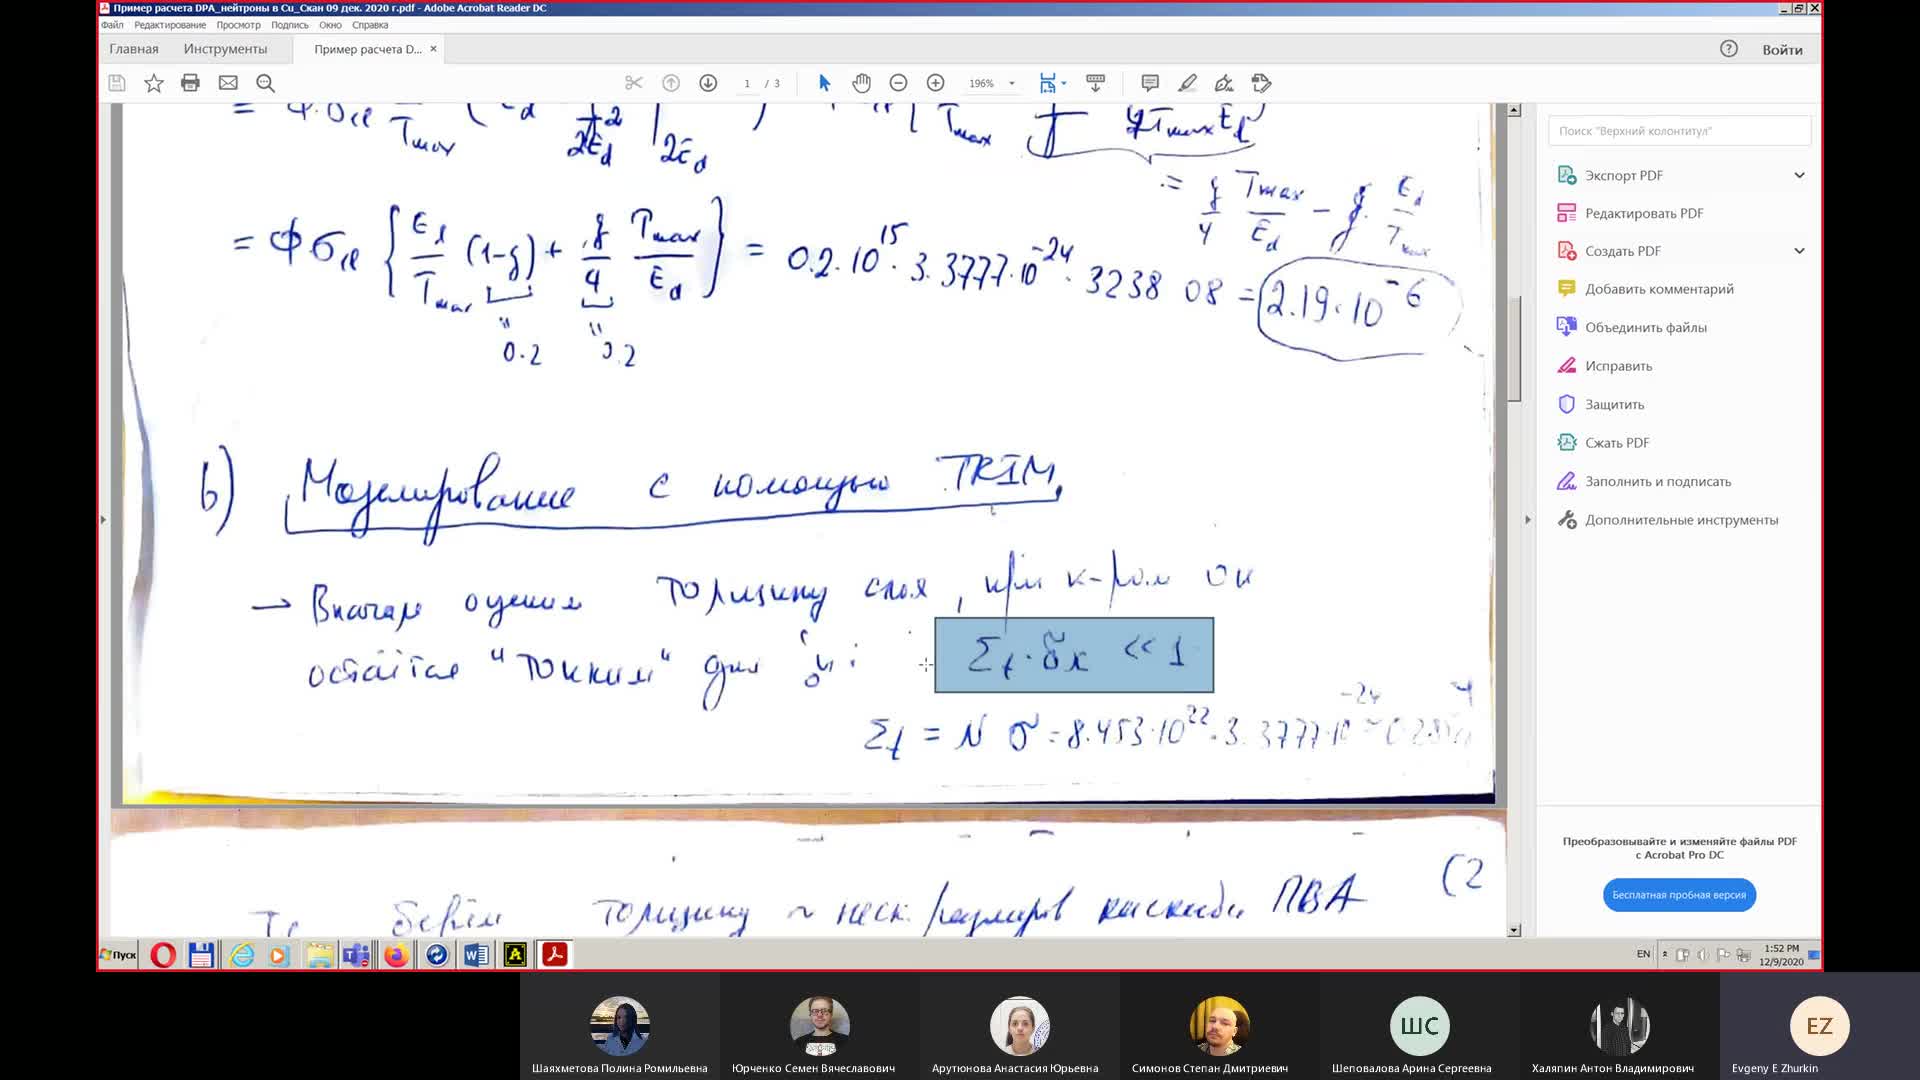 Пример расчета DPA_нейтроны в Cu_Скан 09 дек. 2020 г.pdf - Adobe Acrobat Reader DC
Файл Редактирование Просмотр Подпись Окно Справка
Главная Инструменты Пример расчета D... × Войти
1 / 3 196%
Tmax 2Ed 2Ed Tmax
= g/4 Tmax/Ed - g · Ed/Tmax
= Φσel { Ed/Tmax (1-g) + g/4 Tmax/Ed } = 0.2·10^15 · 3.3777·10^-24 · 3238 08 = 2.19·10^-6
0.2 0.2
b) Моделирование с помощью TRIM
→ Вначале оценим толщину слоя, при к-ром он
остаётся "тонким" для n: Σt·δx << 1
Σt = N σ = 8.453·10^22 · 3.3777·10^-24
(2
берём толщину ~ неск. размеров каскада ПВА
Поиск "Верхний колонтитул"
Экспорт PDF
Редактировать PDF
Создать PDF
Добавить комментарий
Объединить файлы
Исправить
Защитить
Сжать PDF
Заполнить и подписать
Дополнительные инструменты
Преобразовывайте и изменяйте файлы PDF
с Acrobat Pro DC
Бесплатная пробная версия
Пуск EN 1:52 PM
12/9/2020
ШС EZ
Шаяхметова Полина Ромильевна Юрченко Семен Вячеславович Арутюнова Анастасия Юрьевна Симонов Степан Дмитриевич Шеповалова Арина Сергеевна Халяпин Антон Владимирович Evgeny E Zhurkin